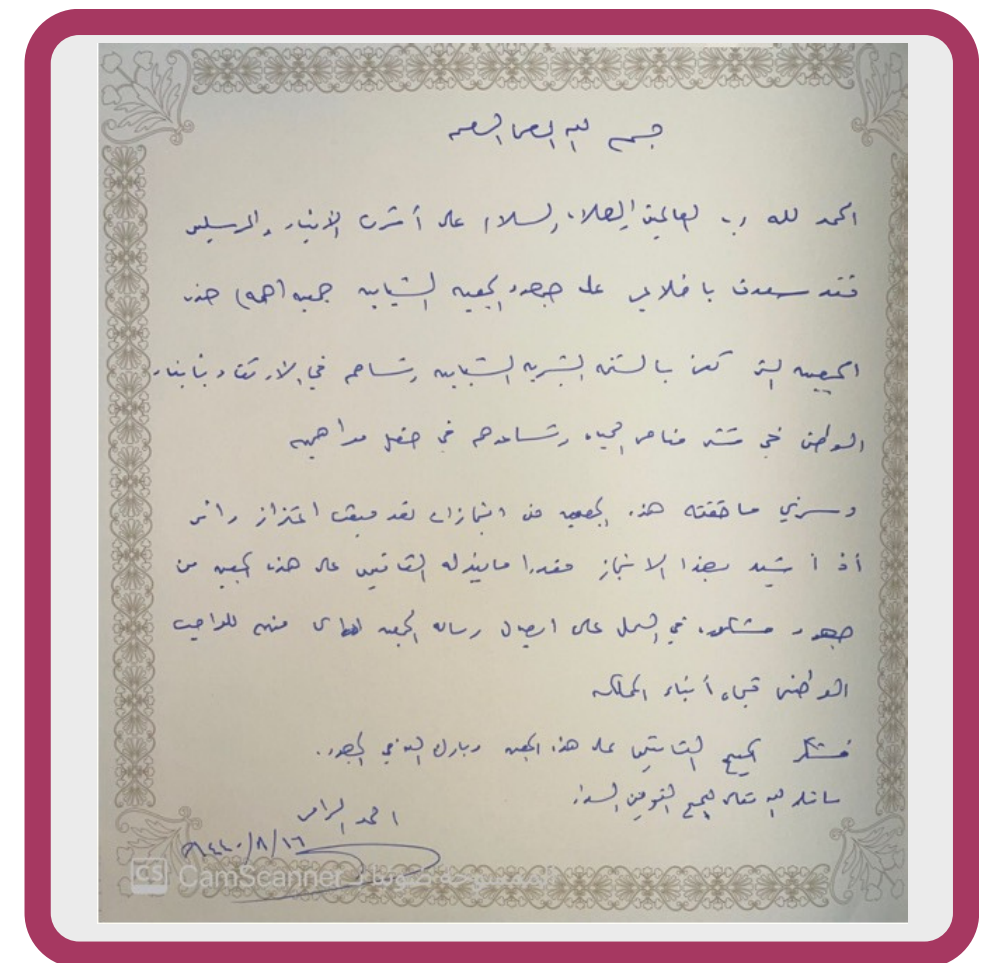 بسم الله الرحمن الرحيم
الحمد لله رب العالمين والصلاة والسلام على أشرف الأنبياء والمرسلين
فقد سعدت باطلاعي على جهود الجمعية الشبابية جمعية (همة) هذه
الجمعية التي تعنى بالتنمية البشرية الشبابية وتساهم في الارتقاء بأبناء
الوطن في شتى مناحي الحياة وتساعدهم في صقل مواهبهم
وسرني ما حققته هذه الجمعية من انجازات تعد مبعث اعتزاز وانني
أذ أشيد بهذا الانجاز مقدرا مايبذله القائمين على هذه الجمعية من
جهود مشكورة في العمل على ايصال رسالة الجمعية منهم للواجب
الوطني تجاه أبناء المملكة
فشكر لجميع القائمين على هذه الجمعية وبارك الله في الجهود.
سائلا الله تعالى للجميع التوفيق السداد
احمد
١٤٤٠/٨/١٦
CS CamScanner الممسوحة ضوئيا بـ